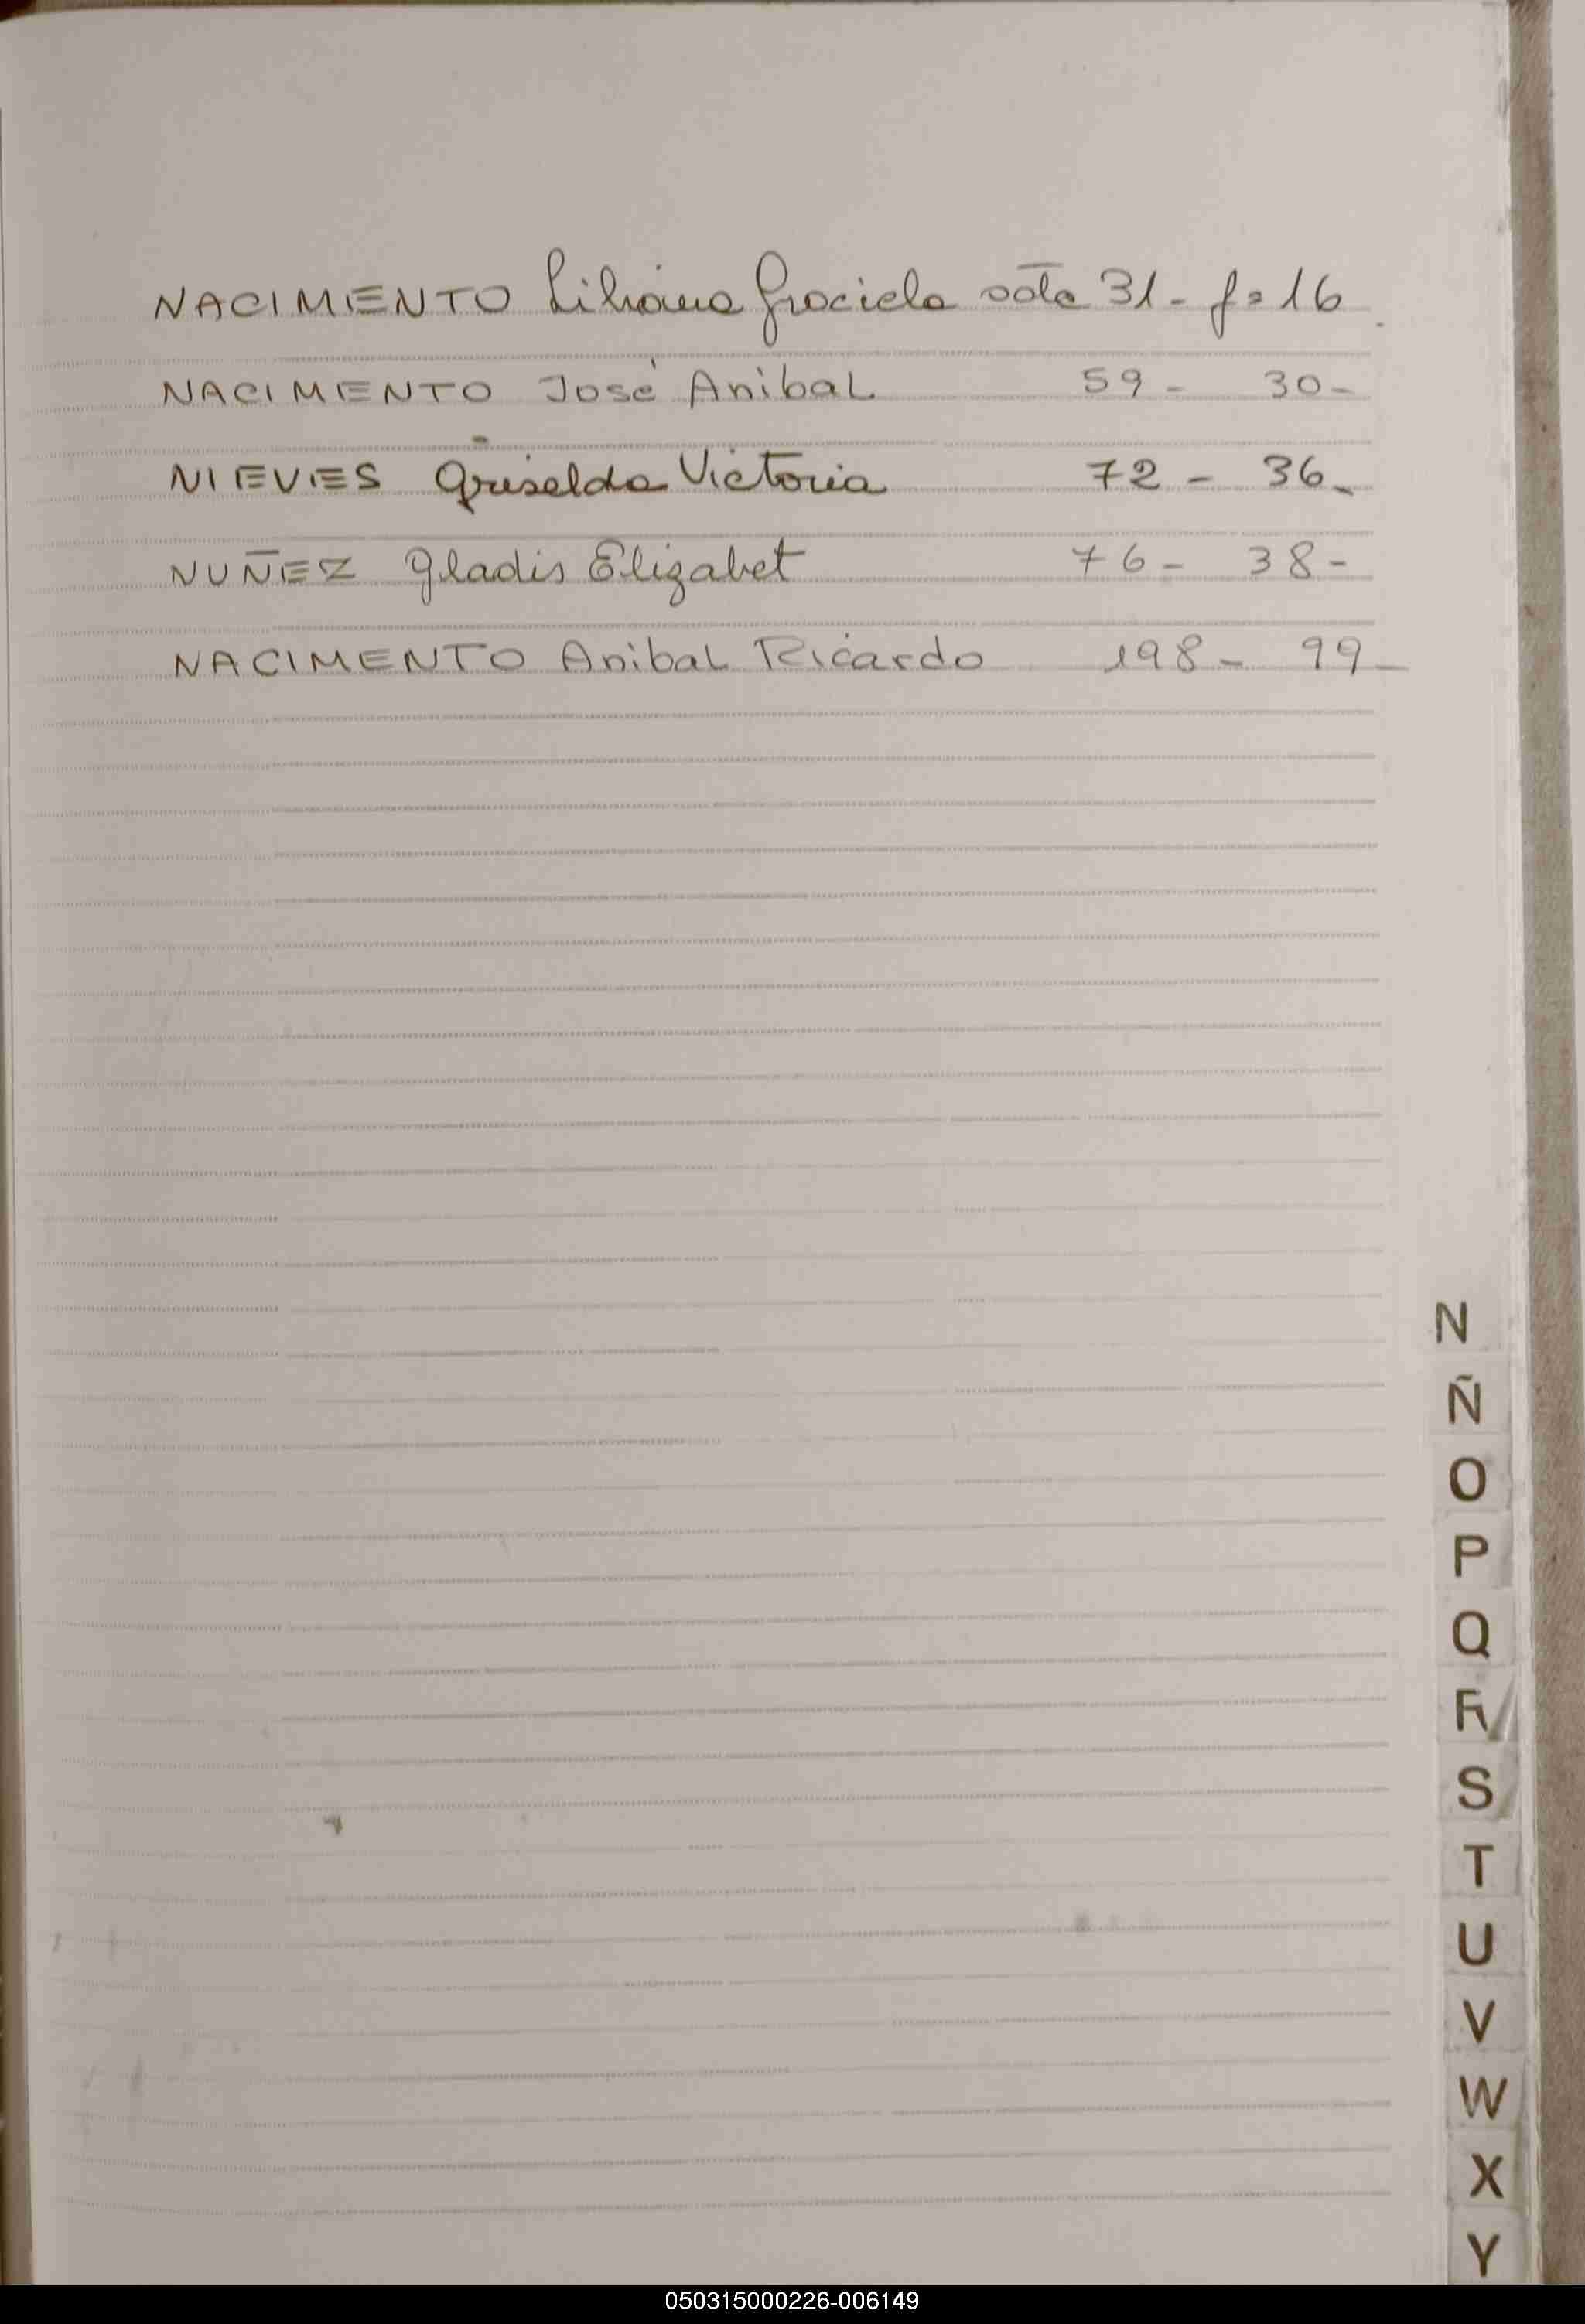 NACIMENTO Liliana Graciela acta 31 - f= 16
NACIMENTO José Anibal 59 - 30 -
NIEVES Griselda Victoria 72 - 36 -
NUÑEZ Gladis Elizabet 76 - 38 -
NACIMENTO Anibal Ricardo 198 - 99 -
N
Ñ
O
P
Q
R
S
T
U
V
W
X
Y
050315000226-006149